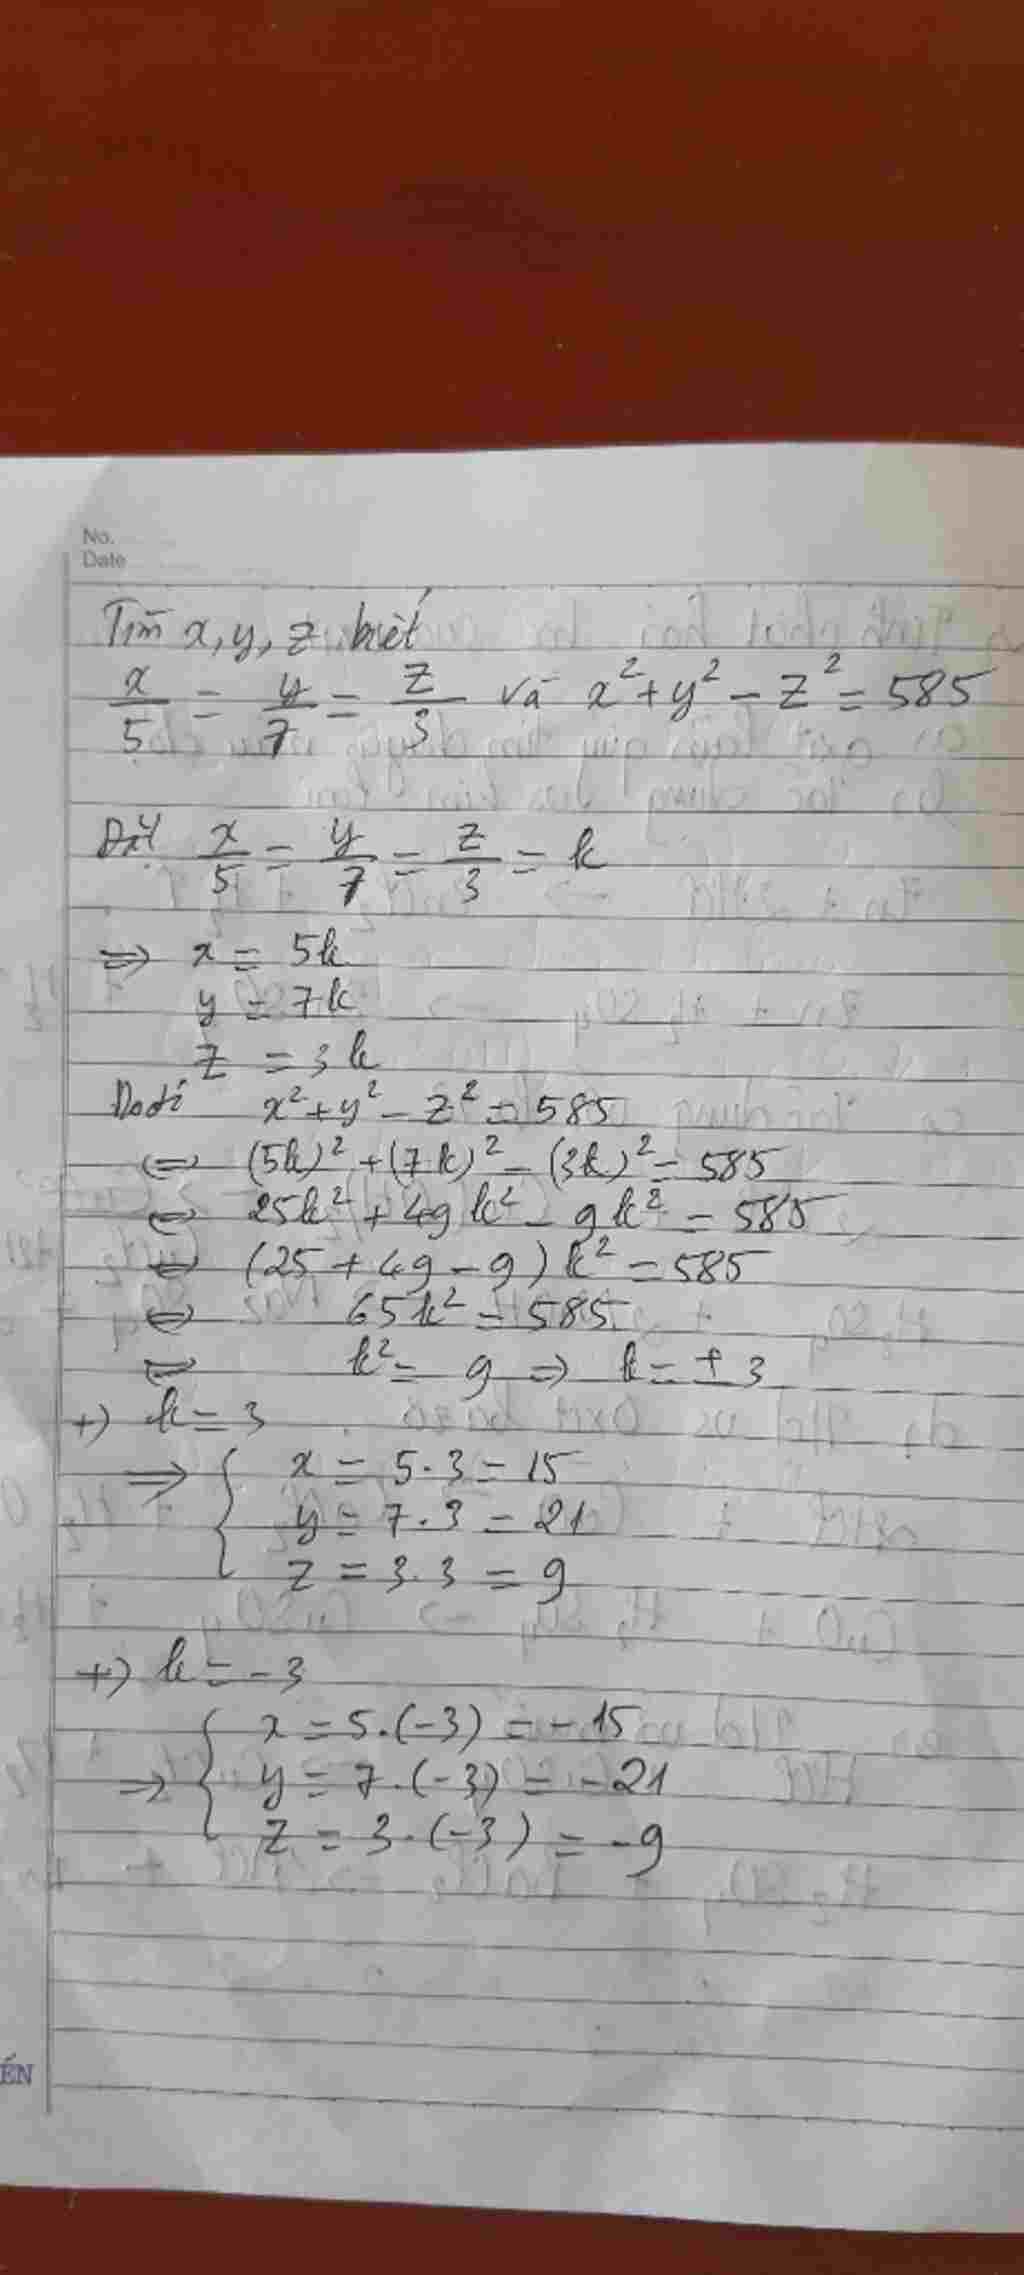 No.
Date
Tìm x, y, z biết
x/5 = y/7 = z/3 và x² + y² - z² = 585
Đặt x/5 = y/7 = z/3 = k
=> x = 5k
y = 7k
z = 3k
Do đó x² + y² - z² = 585
<=> (5k)² + (7k)² - (3k)² = 585
<=> 25k² + 49k² - 9k² = 585
<=> (25 + 49 - 9)k² = 585
<=> 65k² = 585
<=> k² = 9 => k = ±3
+) k = 3
=> { x = 5.3 = 15
y = 7.3 = 21
z = 3.3 = 9
+) k = -3
=> { x = 5.(-3) = -15
y = 7.(-3) = -21
z = 3.(-3) = -9
ẾN